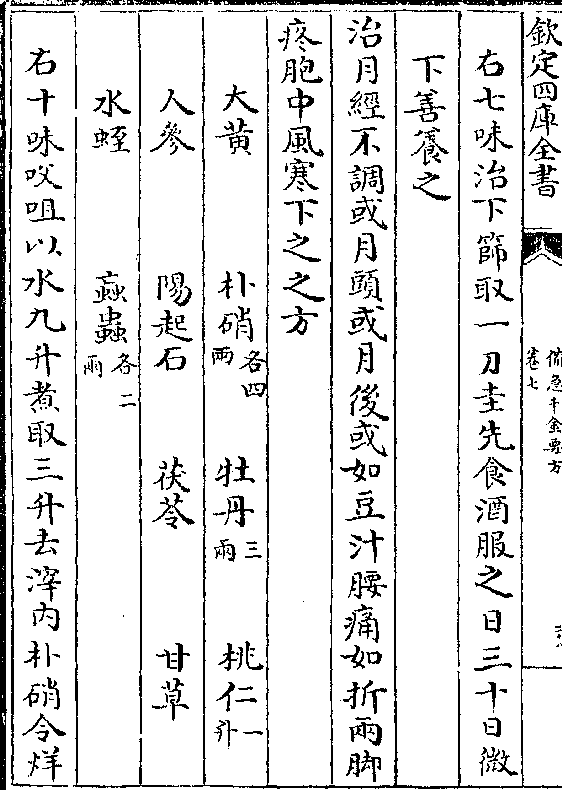 欽定四庫全書
備急千金要方
卷七
右七味治下篩取一刀圭先食酒服之日三十日微
下善養之
治月經不調或月頭或月後或如豆汁腰痛如折兩脚
疼胞中風寒下之之方
大黃 朴硝各四兩 牡丹三兩 桃仁一升
人參 陽起石 茯苓 甘草
水蛭 䖟蟲各二兩
右十味㕮咀以水九升煮取三升去滓内朴硝令烊